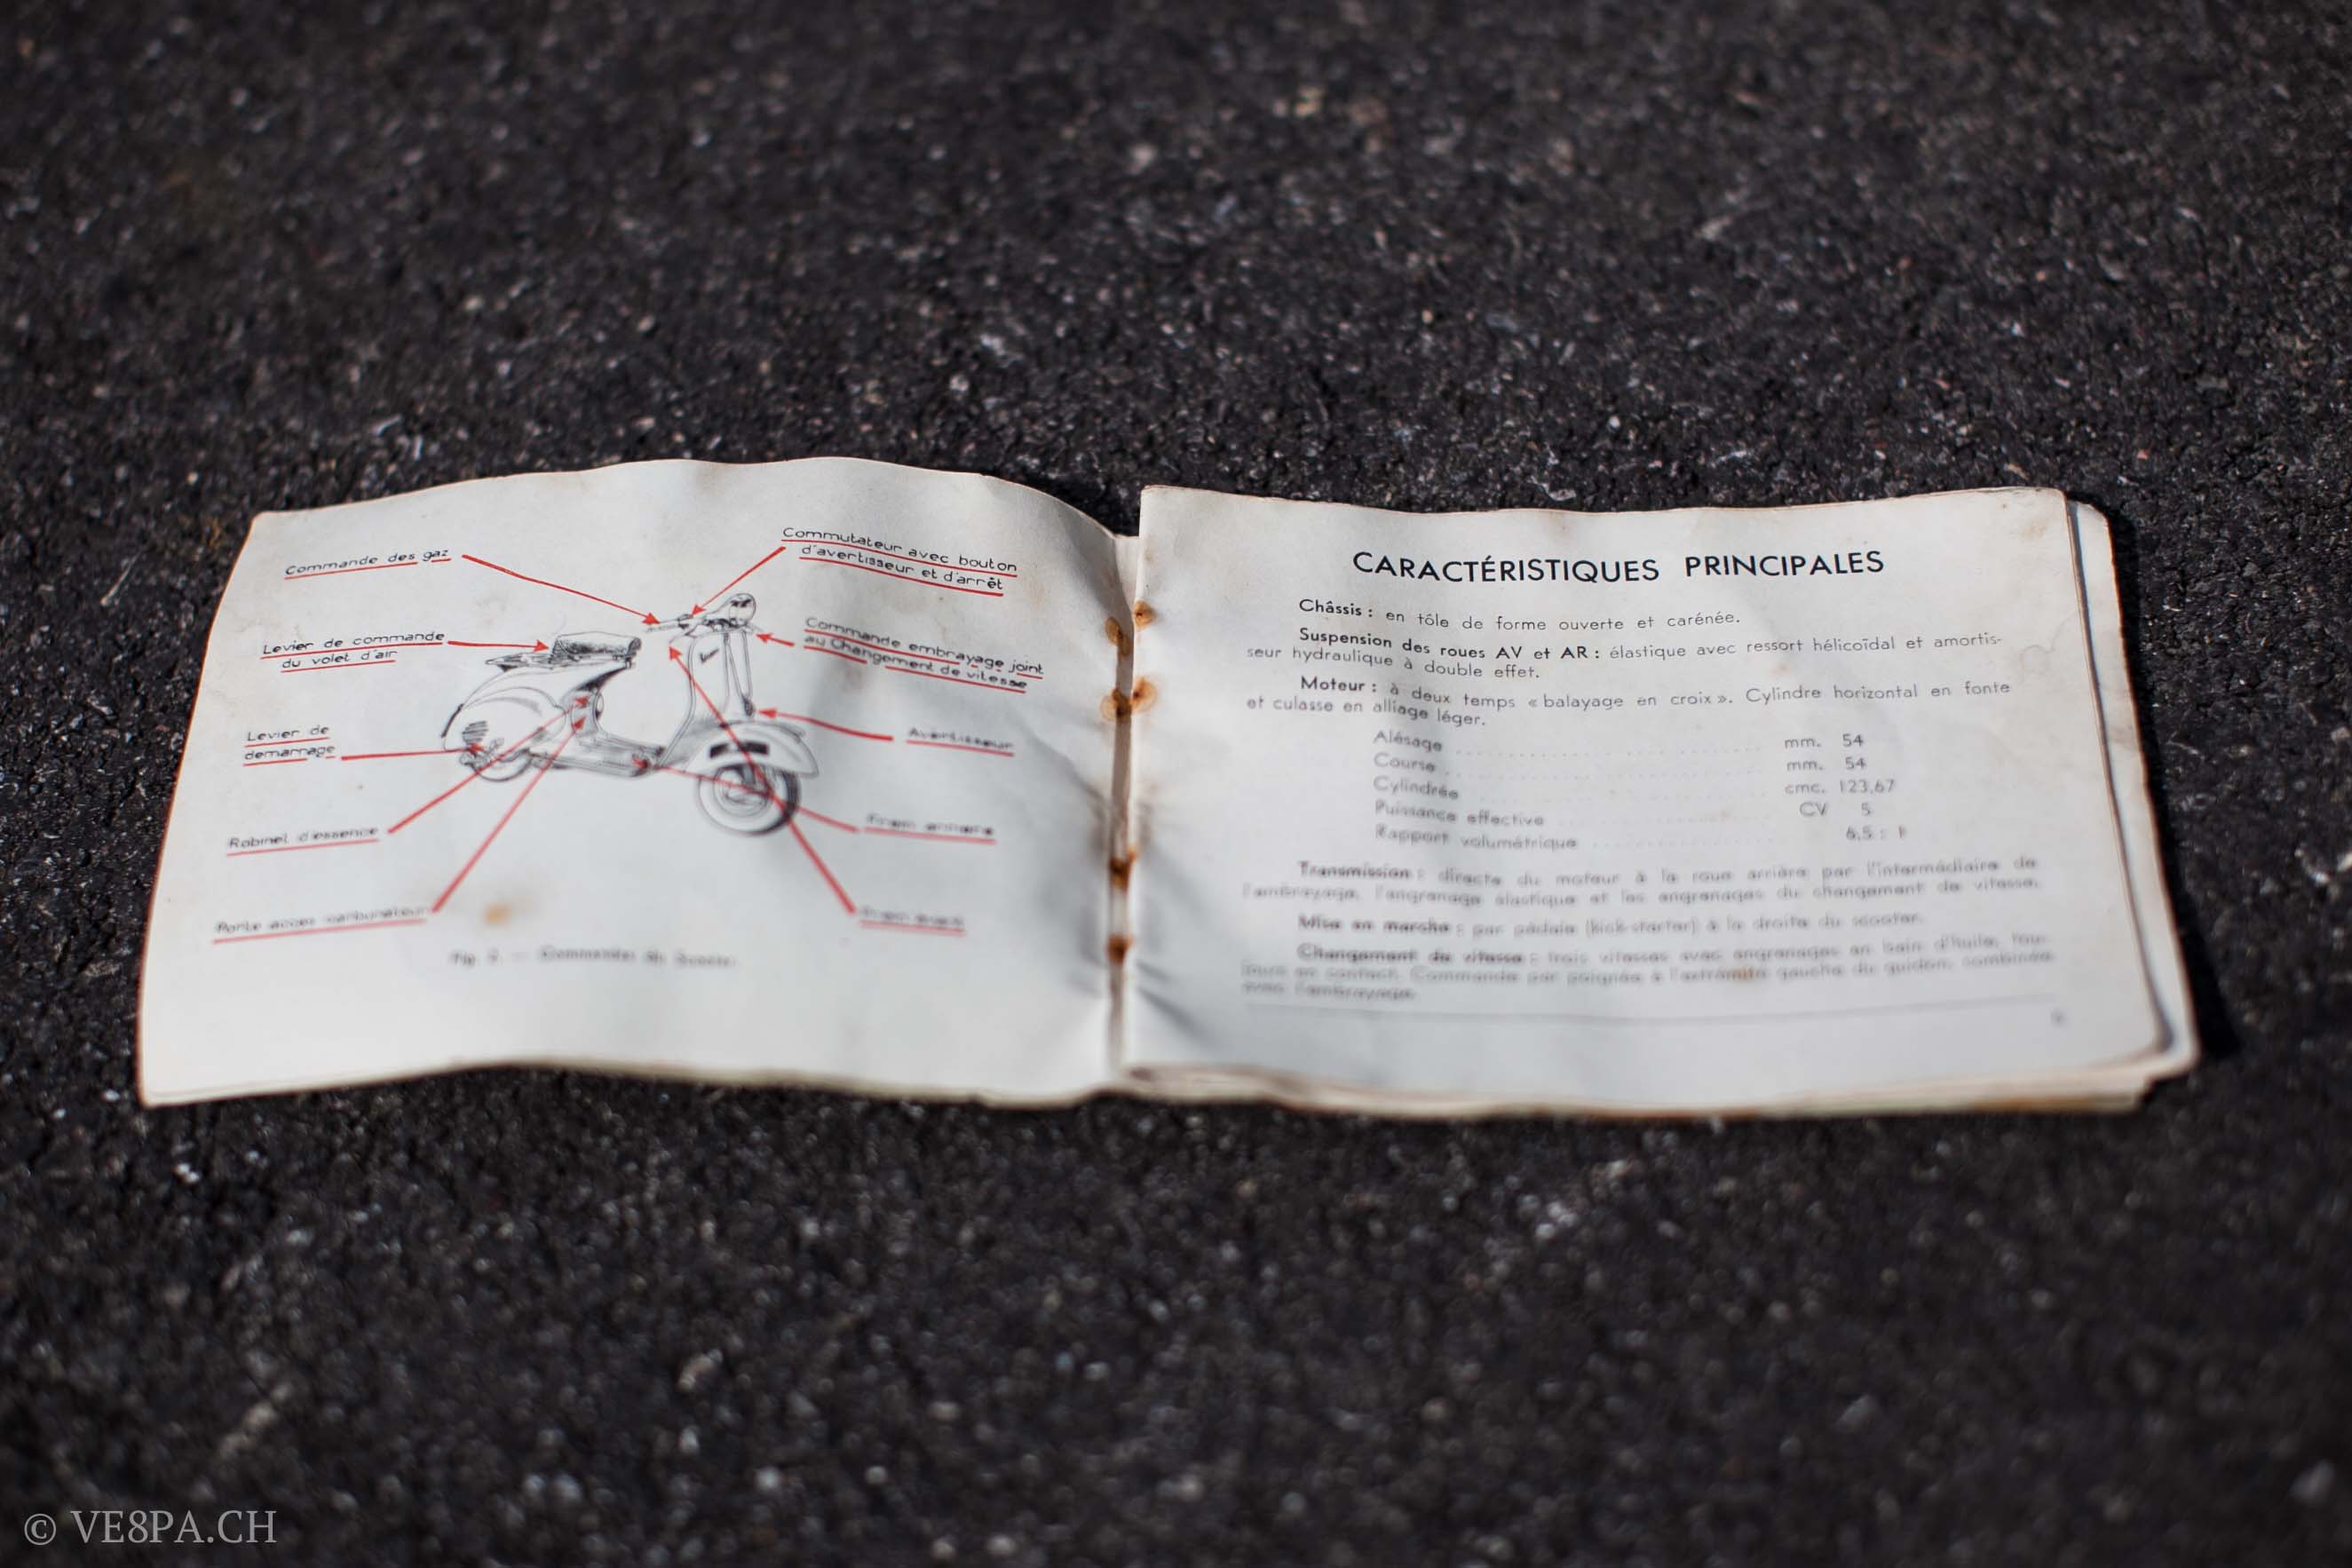 Commande des gaz
Commutateur avec bouton
d'avertisseur et d'arrêt
Levier de commande
du volet d'air
Commande embrayage joint
au Changement de vitesse
Levier de
demarrage
Avertisseur
Robinet d'essence
Frein arriere
Porte acces carburateur
Frein avant
Fig. — Commandes du Scooter.
CARACTÉRISTIQUES PRINCIPALES
Châssis : en tôle de forme ouverte et carénée.
Suspension des roues AV et AR : élastique avec ressort hélicoïdal et amortis-
seur hydraulique à double effet.
Moteur : à deux temps « balayage en croix ». Cylindre horizontal en fonte
et culasse en alliage léger.
Alésage mm. 54
Course mm. 54
Cylindrée cmc. 123,67
Puissance effective CV 5
Rapport volumétrique 6,5 : 1
Transmission : directe du moteur à la roue arrière par l'intermédiaire de
l'embrayage, l'engrenage élastique et les engrenages du changement de vitesse.
Mise en marche : par pédale (kick-starter) à la droite du scooter.
Changement de vitesse : trois vitesses avec engrenages en bain d'huile, tou-
jours en contact. Commande par poignée à l'extrémité gauche du guidon, combinée
avec l'embrayage.
© VE8PA.CH